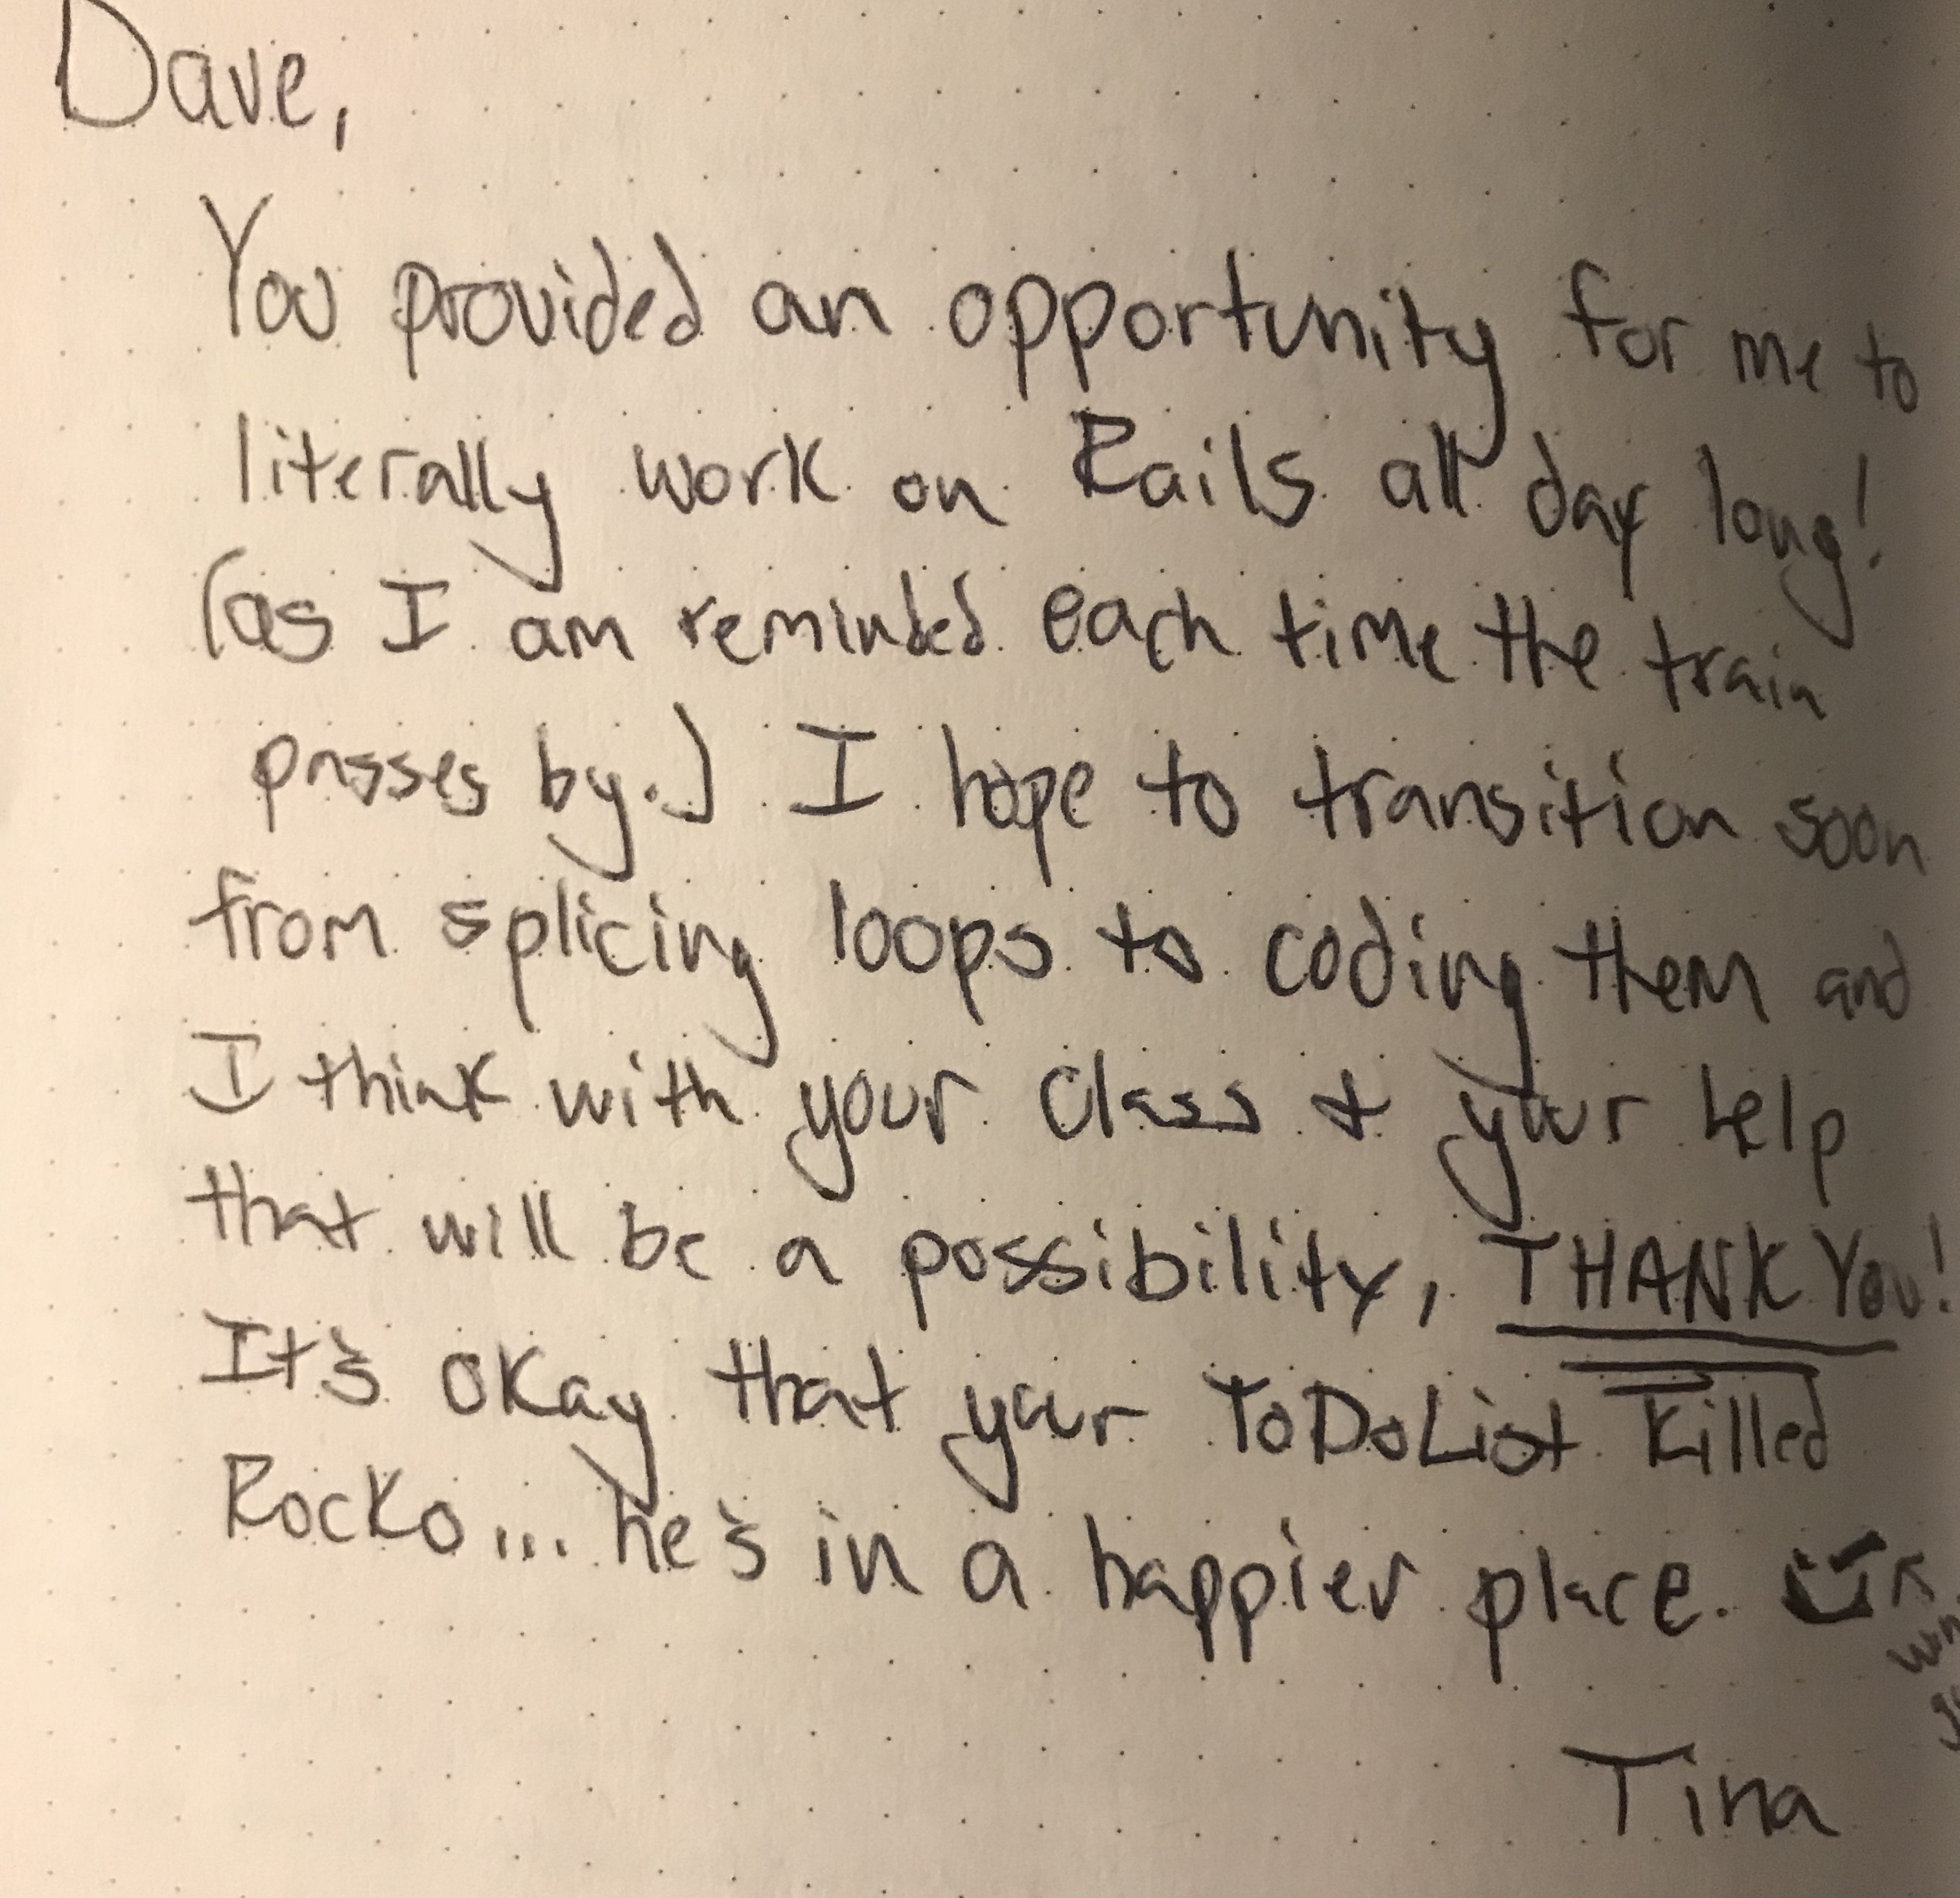 Dave,
You provided an opportunity for me to
literally work on Rails all day long!
(as I am reminded each time the train
passes by.) I hope to transition soon
from splicing loops to coding them and
I think with your class & your help
that will be a possibility, THANK YOU!
It's okay that your ToDoList killed
Rocko... he's in a happier place.
Tina